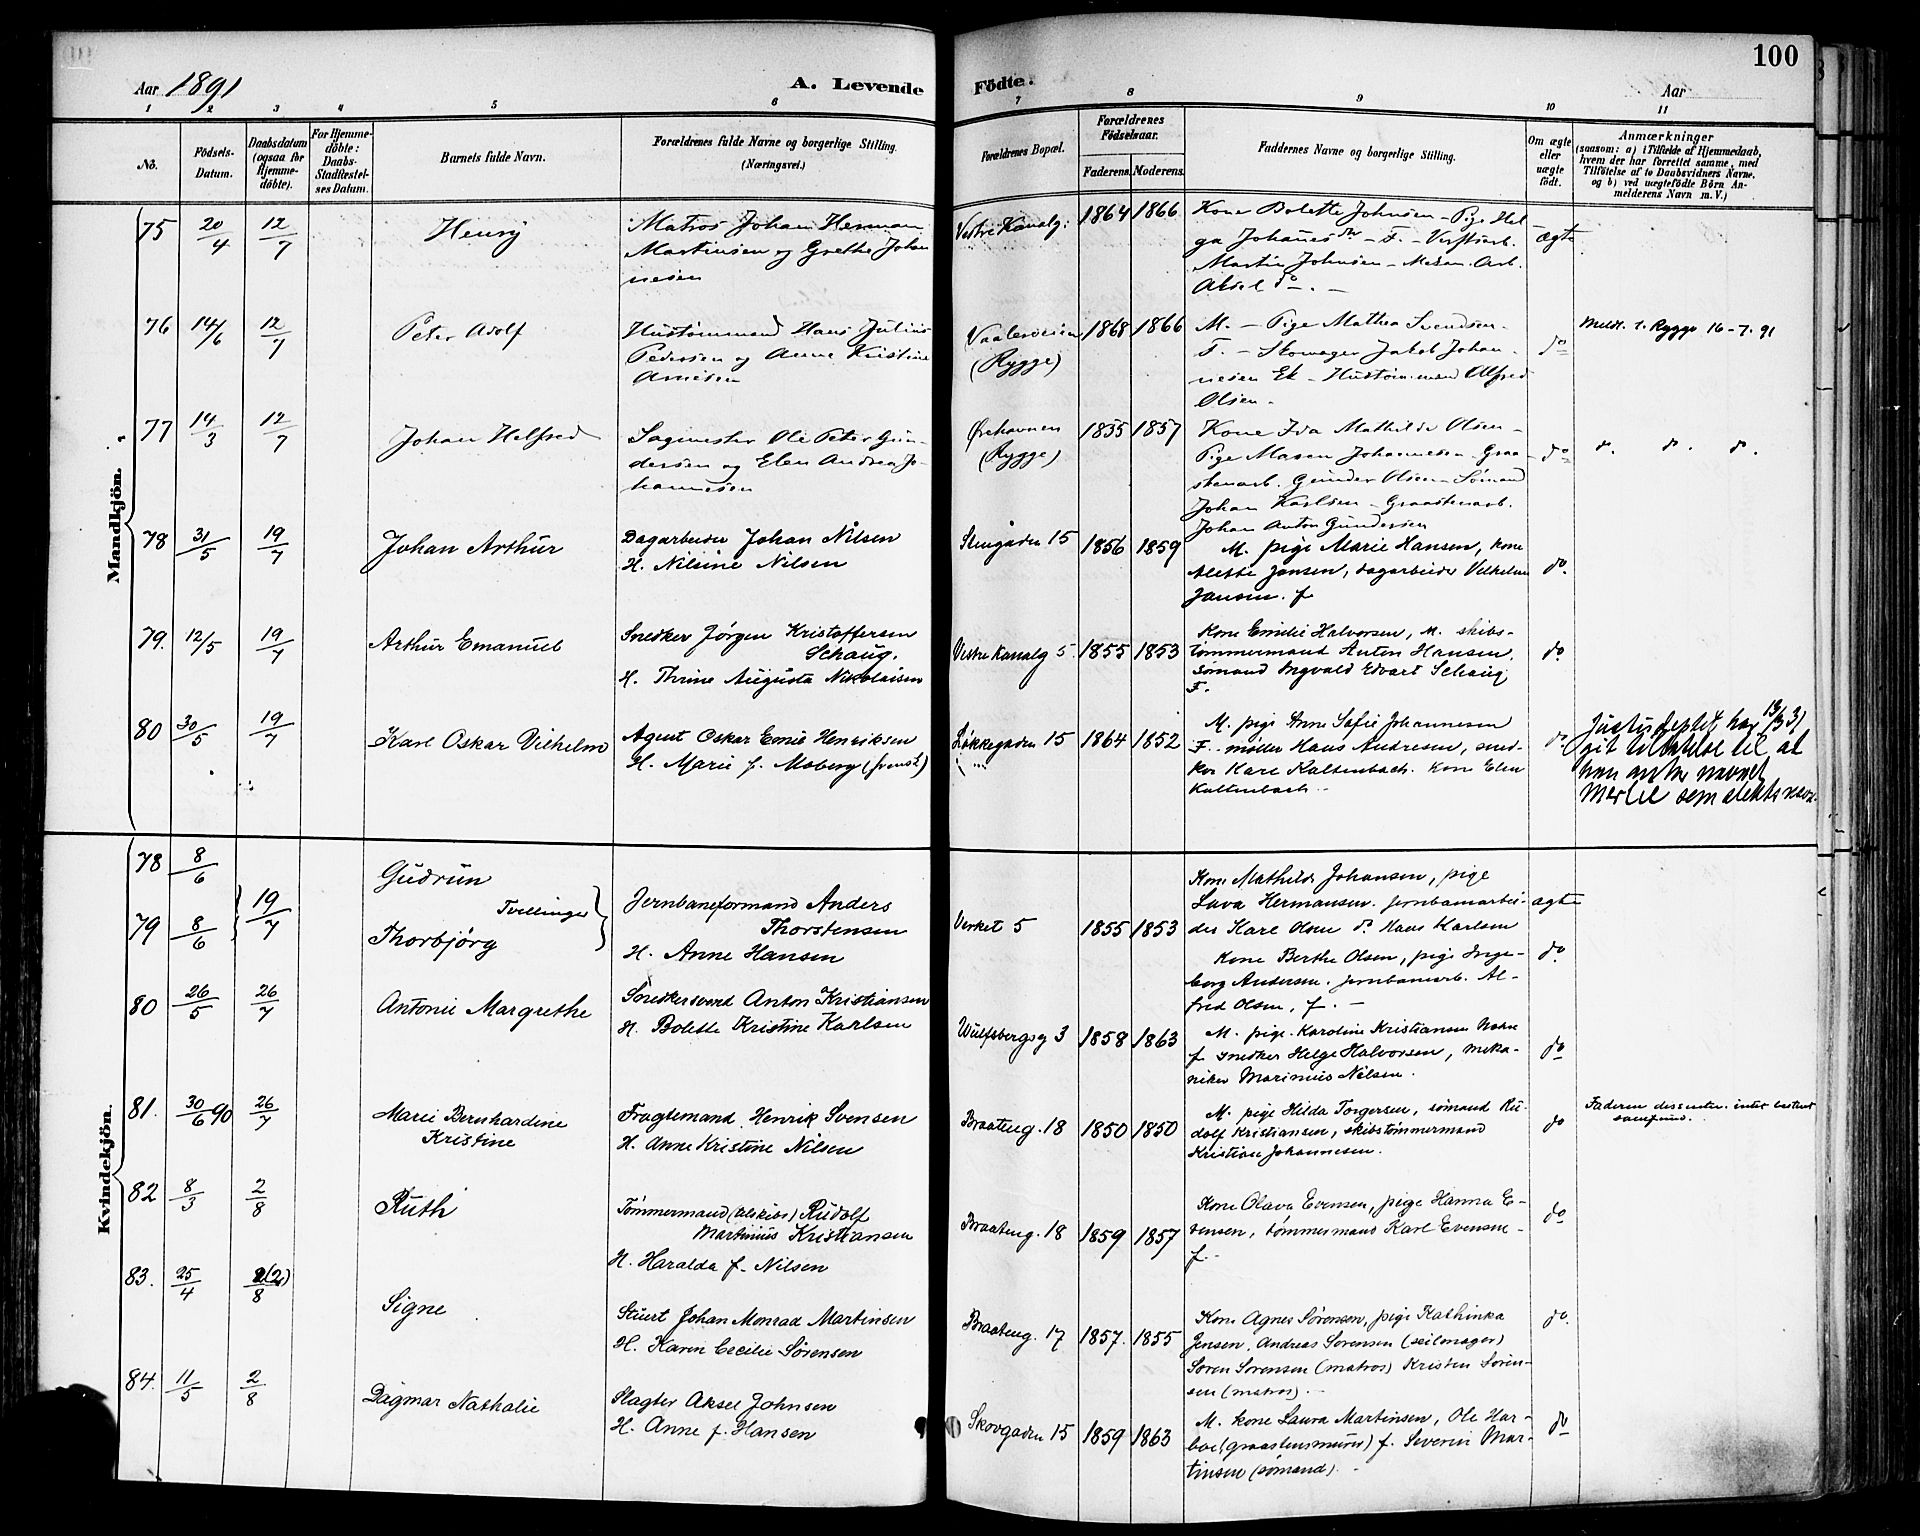 100
Aar 1891
A. Levende
Födte.
Aar
1 2 3 4 5 6 7 8 9 10 11
No.
Födsels-Datum.
Daabsdatum (ogsaa for Hjemme-döbte).
For Hjemme-döbte: Daabs-Stadfæstel-ses Datum.
Barnets fulde Navn.
Forældrenes fulde Navne og borgerlige Stilling.
(Næringsvei.)
Forældrenes Bopæl.
Forældrenes Födselsaar.
Faderens. Moderens.
Faddernes Navne og borgerlige Stilling.
Om ægte eller uægte födt.
Anmærkninger
(saasom: a) i Tilfælde af Hjemmedaab,
hvem der har forrettet samme, med
Tilföielse af to Daabsvidners Navne,
og b) ved uægtefödte Börn An-
melderens Navn m. V.)
Mandkjön.
75 20/4 12/7 Henry
Matros Johan Herman
Martinsen og Grethe Johan
nesen
Vestre Kanalg: 1864 1866
Kone Bolette Johnsen - Pige Hel
ga Johanesdtr - F. - Verftsarb.
Martin Johnsen - Mekan. Arb.
Aksel do -
ægte
76 14/6 12/7 Peter Adolf
Hustømmermand Hans Julius
Pedersen og Anne Kristine
Arnesen
(Rygge)
1868 1866
M. - Pige Mathea Svendsen -
F. - Skomager Jakob Johan
nesen Ek - Hustømmermand Alfred
Olsen -
do
Meldt t. Rygge 16-7. 91
77 14/3 12/7 Johan Helfred
Sagmester Ole Peter Gun
dersen og Elen Andrea Jo-
hannesen
Ørehavnen
(Rygge)
1835 1857
Kone Ida Mathilde Olsen -
Pige Maren Johannesen - Graa
stenarb. Gunder Olsen - Sømand
Johan Karlsen - Graastenarb.
Johan Anton Gundersen
do
do. do. do.
78 31/5 19/7 Johan Arthur
Dagarbeider Johan Nilsen
H. Nilsine Nilsen
Stengaden 15 1856 1859
M. pige Marie Hansen, kone
Alette Jansen, dagarbeider Vilhelm
Jansen. f
do.
79. 12/5 19/7 Arthur Emanuel
Snedker Jørgen Kristoffersen
Schaug.
H. Thrine Augusta Nikolaisen
Vestre Kanalg 5. 1855 1853
Kone Emilie Halvorsen, M. skibs-
tømmermand Anton Hansen,
sømand Ingvald Edvart Schaug
F.
do.
80 30/5 19/7 Karl Oskar Vilhelm
Agent Oskar Emil Henriksen
H. Marie f. Moberg (svensk)
Løkkegaden 15 1864 1852
M. pige Anne Sofie Johannesen
F. møller Hans Andresen, sned-
ker Karl Kaltenbach. kone Elen
Kaltenbach -
do.
Justisdeptet har
git tilladelse til at
han antar navnet
som slektsnavn.
Kvindekjön.
78 8/6 Gudrun
Tvillinger
79 8/6 19/7 Thorbjørg
Jernbaneformand Anders
Thorstensen
H. Anne Hansen
Verket 5 1855 1853
Kone Mathilde Johansen, pige
Lava Hermansen. jernbanearbei-
der Karl Olsen do. Hans Karlsen
Kone Berthe Olsen, pige Inge-
borg Andersen. jernbanearb. Al-
fred Olsen, f. -
ægte
do
80 26/5 26/7 Antonie Margrethe
Snedkersvend Anton Kristiansen
H. Bolette Kristine Karlsen
Wulfsbergsg 3 1858 1863
M. pige. Karoline Kristiansen
f. snedker Helge Halvorsen, meka-
niker Marinius Nilsen.
do
81. 30/6 90 26/7 Marie Bernhardine
Kristine
Fragtemand Henrik Svensen
H. Anne Kristine Nilsen
Braateng. 18 1850 1850
M. pige Hilda Torgersen, sømand Ru-
dolf Kristiansen, skibstømmermand
Kristian Johannesen.
do
Faderen dissenter. intet bestemt
samfund.
82 8/3 2/8 Ruth
Tømmermand (tilskibs) Rudolf
Martinius Kristiansen
H. Haralda f. Nilsen
Braateng. 18 1859 1857
Kone Olava Evensen, pige Hanna E-
vensen, tømmermand Karl Evensen -
f. -
do
83. 25/4 2/8 (2) Signe
Stuert Johan Monrad Martinsen
H. Karen Cecilie Sørensen
Braateng. 17 1857. 1855
Kone Agnes Sørensen, pige Kathinka
Jensen, Andreas Sørensen (seilmager)
Søren Sørensen (matros) Kristen Søren-
sen (matros). -
do.
84. 11/5 2/8 Dagmar Nathalie
Slagter Aksel Johnsen
H. Anne f. Hansen
Skovgaden 15 1859 1863
M. kone Laura Martinsen, Ole Har-
boe (graastensmurer) f. Severin Mar-
tinsen (sømand). -
do